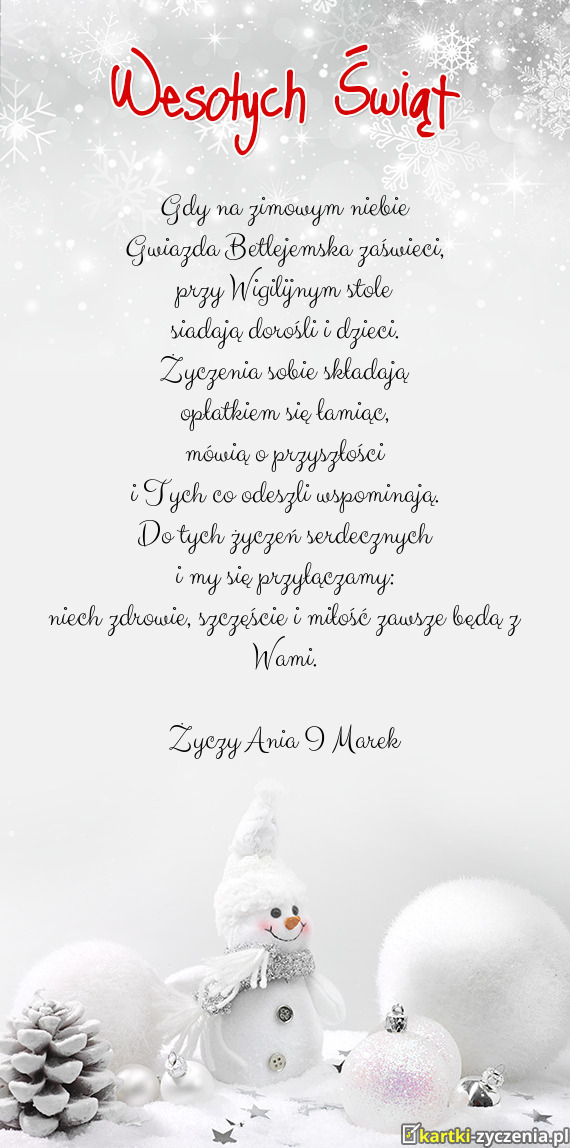 Wesołych Świąt
Gdy na zimowym niebie
Gwiazda Betlejemska zaświeci,
przy Wigilijnym stole
siadają dorośli i dzieci.
Życzenia sobie składają
opłatkiem się łamiąc,
mówią o przyszłości
i Tych co odeszli wspominają.
Do tych życzeń serdecznych
i my się przyłączamy:
niech zdrowie, szczęście i miłość zawsze będą z
Wami.
Życzy Ania I Marek
kartki-zyczenia.pl